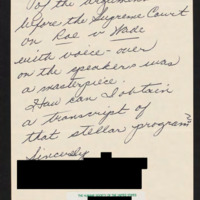 of the argument
before the Supreme Court
on Roe v Wade
with voice-over
on the speakers was
a masterpiece.
How can I obtain
a transcript of
that stellar program?
Sincerely